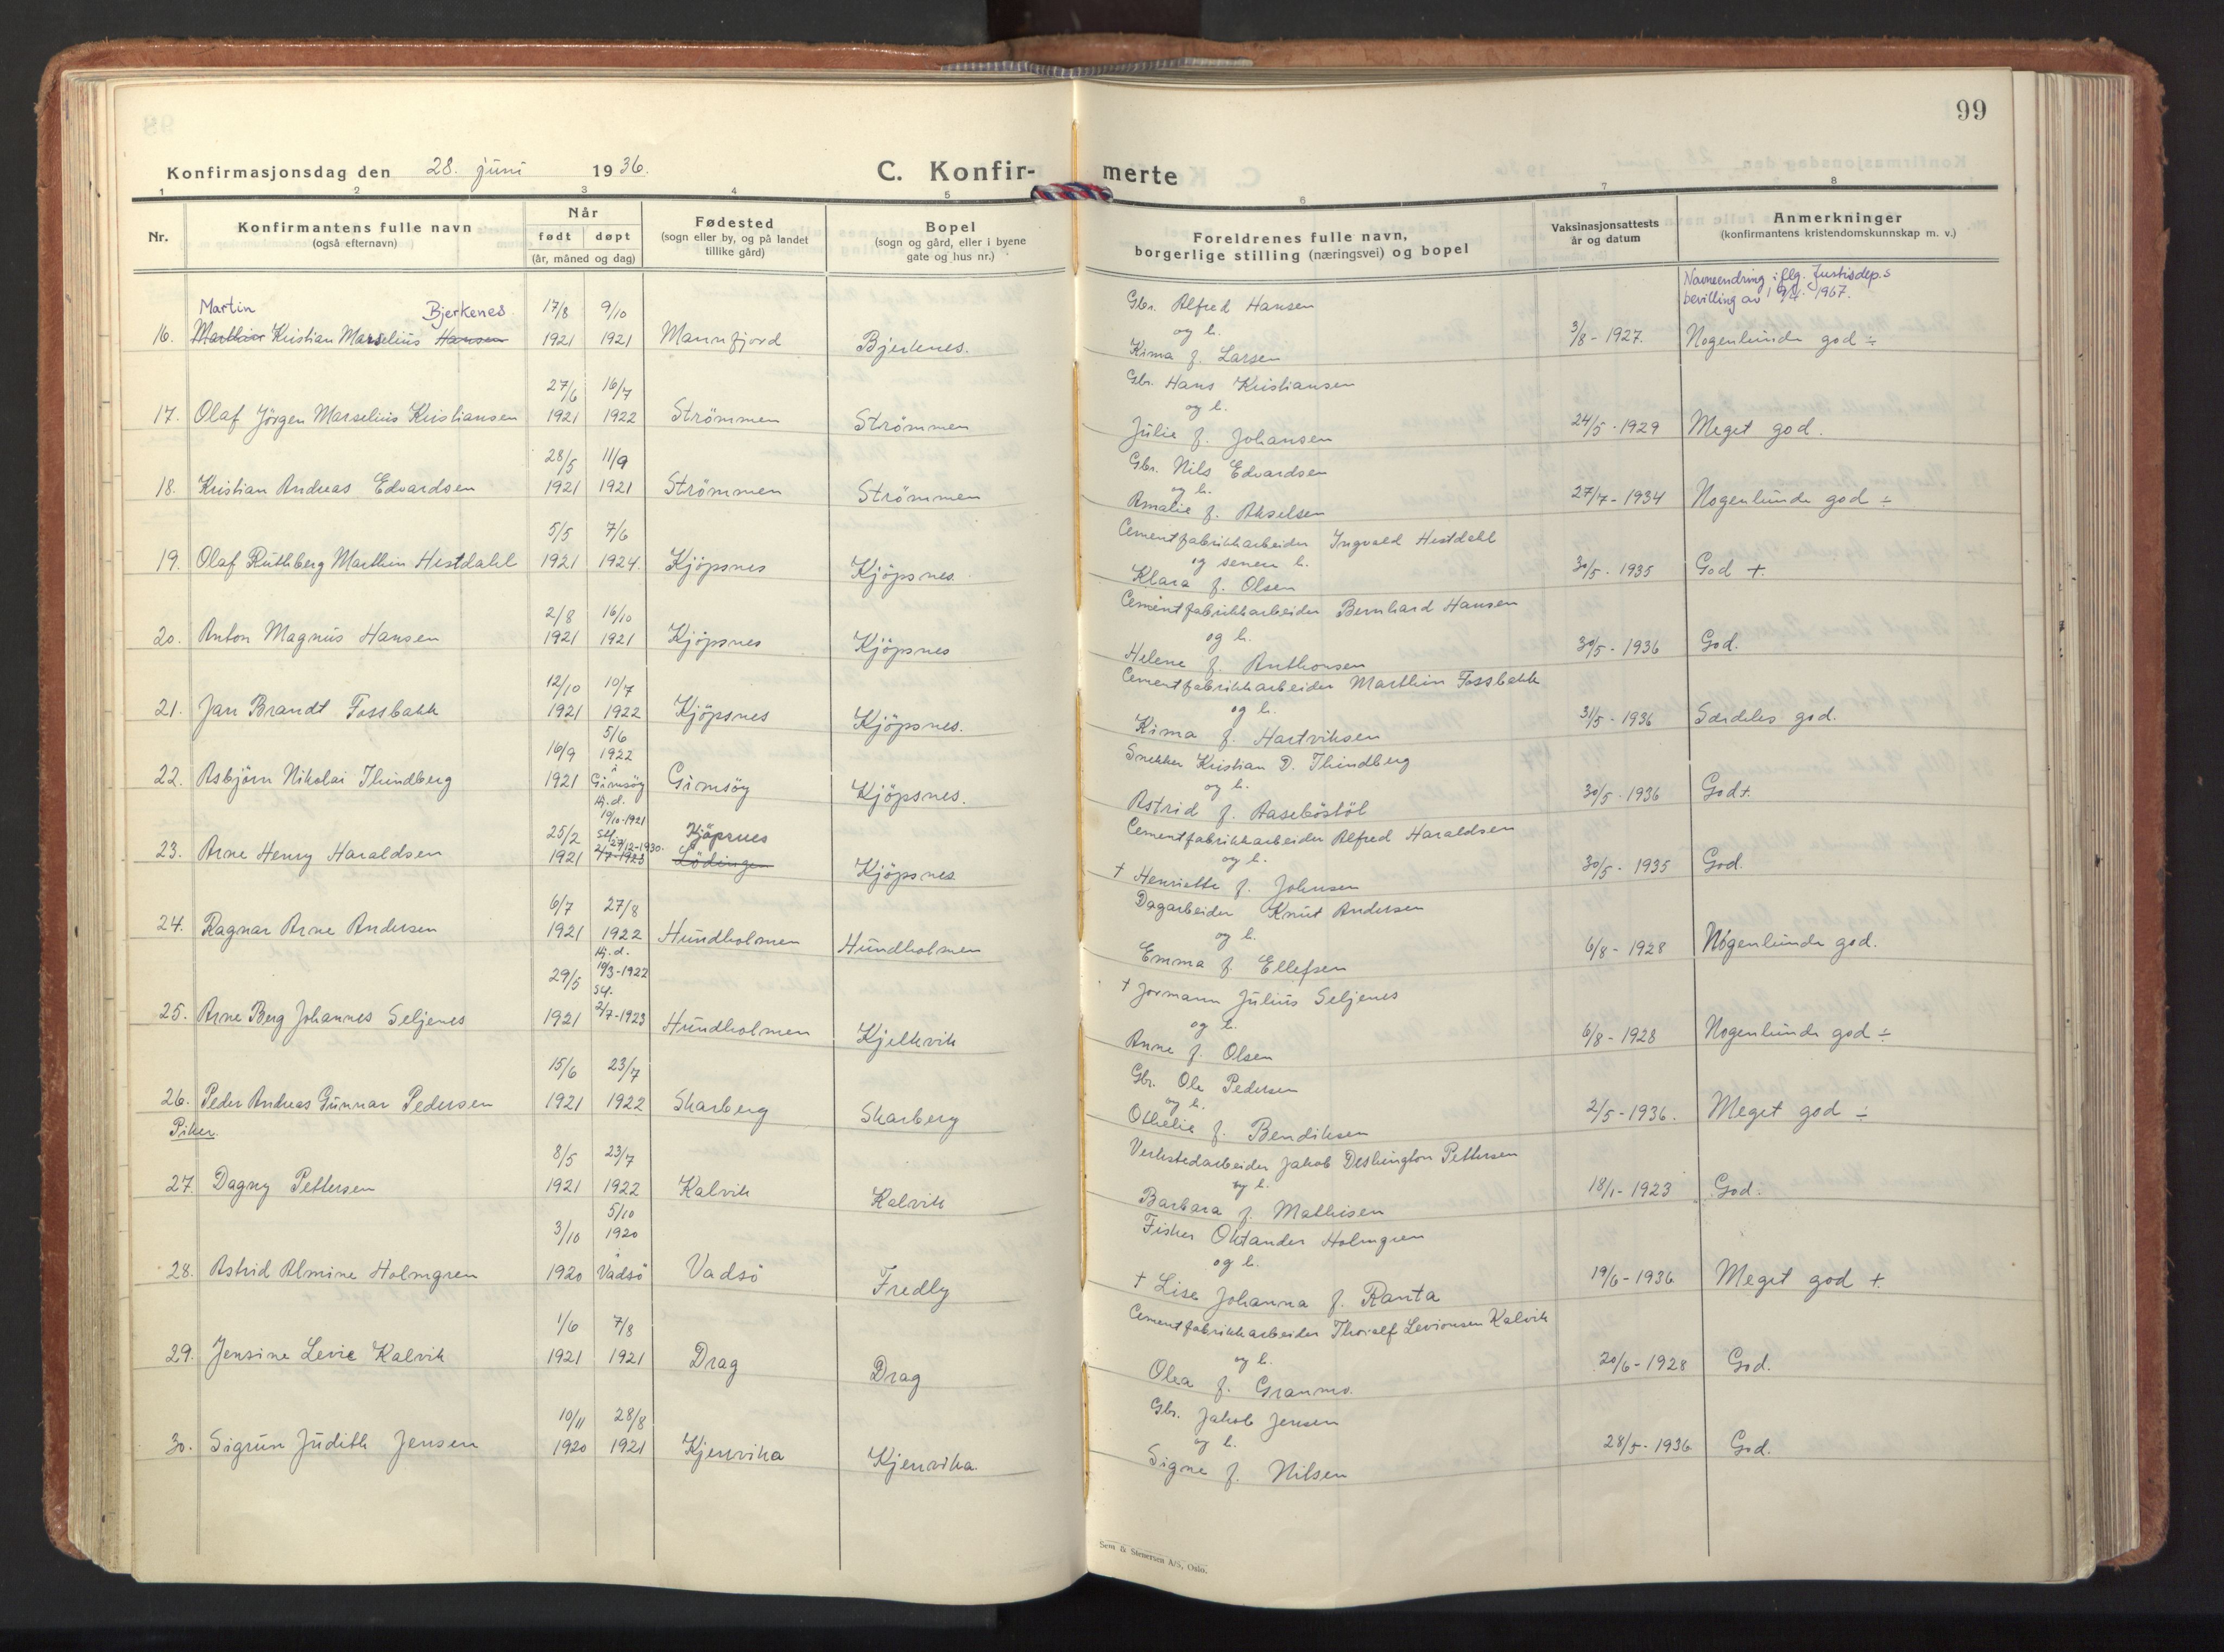 99
Konfirmasjonsdag den 28. juni 1936.
C. Konfir-
merte
1 2 3 4 5 6 7 8
Nr.
Konfirmantens fulle navn
(også efternavn)
Når
født døpt
(år, måned og dag)
Fødested
(sogn eller by, og på landet
tillike gård)
Bopel
(sogn og gård, eller i byene
gate og hus nr.)
Foreldrenes fulle navn,
borgerlige stilling (næringsvei) og bopel
Vaksinasjonsattests
år og datum
Anmerkninger
(konfirmantens kristendomskunnskap m. v.)
Navneendring iflg. Justisdep.s
bevilling av 1967.
Martin Bjerkenes 17/8 9/10 Gbr. Alfred Hansen
og h.
16. Marthin Kristian Marselius Hansen 1921 1921 Mannfjord Bjerknes. 3/8 - 1927. Nogenlunde god ÷
Kima f. Larsen
27/6 16/7 Gbr. Hans Kristiansen
og h.
17. Olaf Jörgen Marselius Kristiansen 1921 1922 Strömmen Strömmen 24/5 - 1929 Meget god.
Julie f. Johansen
28/5 11/9 Gbr. Nils Edvardsen
og h.
18. Kristian Andreas Edvardsen 1921 1921 Strömmen Strömmen 27/7 - 1934 Nogenlunde god ÷
Amalie f. Akselsen
5/5 7/6 Cementfabrikkarbeider Ingvald Hestdahl
og senere h.
19. Olaf Ruthberg Marthin Hestdahl 1921 1924. Kjöpsnes Kjöpsnes. 30/5 - 1935 God +.
Klara f. Olsen
2/8 16/10 Cementfabrikkarbeider Bernhard Hansen
og h.
20. Anton Magnus Hansen 1921 1921 Kjöpsnes Kjöpsnes 30/5 - 1936 God.
Helene f. Anthonsen
12/10 10/7 Cementfabrikkarbeider Marthin Fossbakk
og h.
21. Jan Brandt Fossbakk 1921 1922 Kjöpsnes Kjöpsnes. 31/5 - 1936 Særdeles god.
Kima f. Hartviksen
16/9 5/6 1922 Snekker Kristian D. Thindberg
og h.
22. Asbjörn Nikolai Thindberg 1921 i Gimsöy Gimsöy Kjöpsnes. 30/5 - 1936 God+.
Astrid f. Aaseböstöl
25/2 Hj.d. 19/10-1921 Kjöpsnes Cementfabrikkarbeider Alfred Haraldsen
st. 27/12-1930. og h.
23. Arne Henry Haraldsen 1921 2/7-1923 Lödingen Kjöpsnes 30/5 - 1935 God.
† Henriette f. Johnsen
6/7 27/8 Dagarbeider Knut Andersen
og h.
24. Ragnar Arne Andersen 1921 1922 Hundholmen Hundholmen 6/8 - 1928 Nogenlunde god.
Emma f. Ellefsen
29/5 Hj.d. 19/3-1922 † Jormann Julius Seljenes
st. og h.
25. Arne Berg Johannes Seljenes 1921 2/7-1923 Hundholmen Kjelkvik 6/8 - 1928 Nogenlunde god ÷
Anne f. Olsen
15/6 23/7 Gbr. Ole Pedersen
og h.
26. Peder Andreas Gunnar Pedersen 1921 1922 Skarberg Skarberg 2/5 - 1936. Meget god ÷
Othelie f. Bendiksen
Piker.
8/5 23/7 Verkstedarbeider Jakob Deshington Pettersen
og h.
27. Dagny Pettersen 1921 1922 Kalvik Kalvik 18/1 - 1923 God.
Barbara f. Mathisen
3/10 5/10 1920 Fisker Oktander Holmgren
og h.
28. Astrid Almine Holmgren 1920 i Vadsö Vadsö Fredly 19/6 - 1936 Meget god +.
† Lise Johanna f. Ranta
1/6 7/8 Cementfabrikkarbeider Thoralf Levionsen Kalvik
og h.
29. Jensine Levie Kalvik 1921 1921 Drag Drag 20/6 - 1928 God.
Olea f. Granmo.
10/11 28/8 Gbr. Jakob Jensen
og h.
30. Sigrun Judith Jensen 1920 1921 Kjenvika Kjenvika. 28/5 - 1936 God.
Signe f. Nilsen
Sem & Stenersen A/S, Oslo.